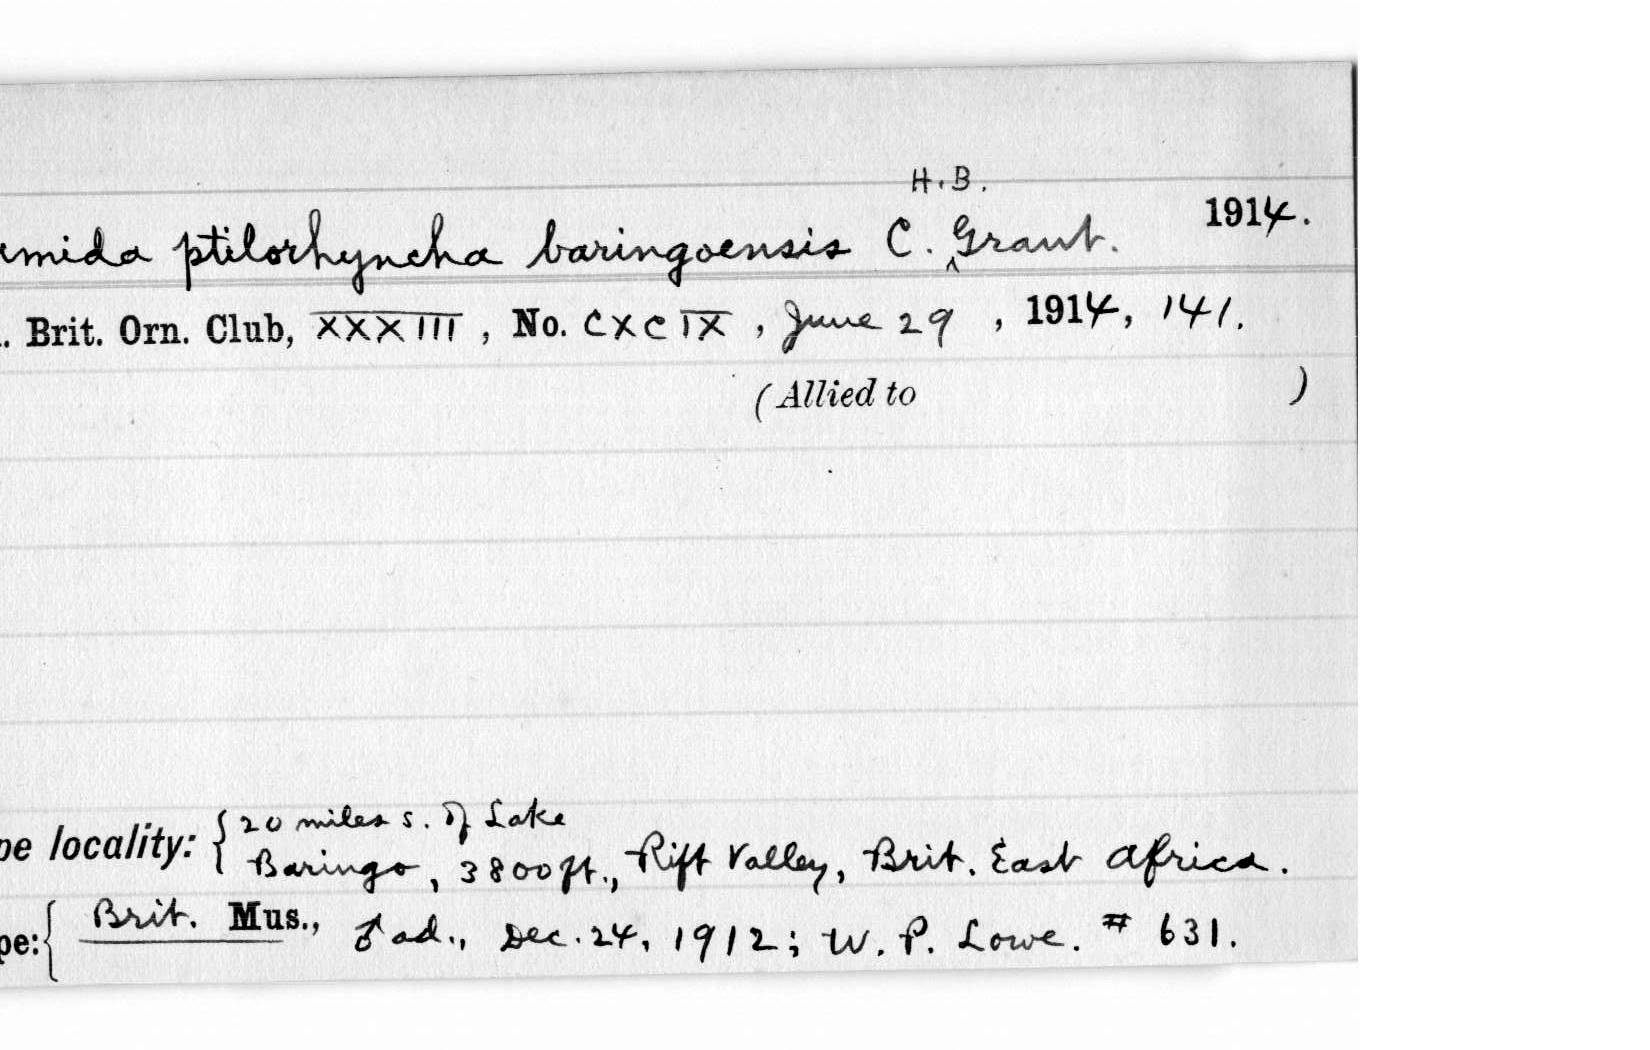 H. B.
umida ptilorhyncha baringoensis C. ^ Grant. 1914.
. Brit. Orn. Club, XXXIII, No. CXCIX, June 29, 1914, 141.
(Allied to )
pe locality: { 20 miles s. of Lake
Baringo, 3800 ft., Rift Valley, Brit. East Africa.
pe: { Brit. Mus., ♂ ad., Dec. 24, 1912; W. P. Lowe. # 631.